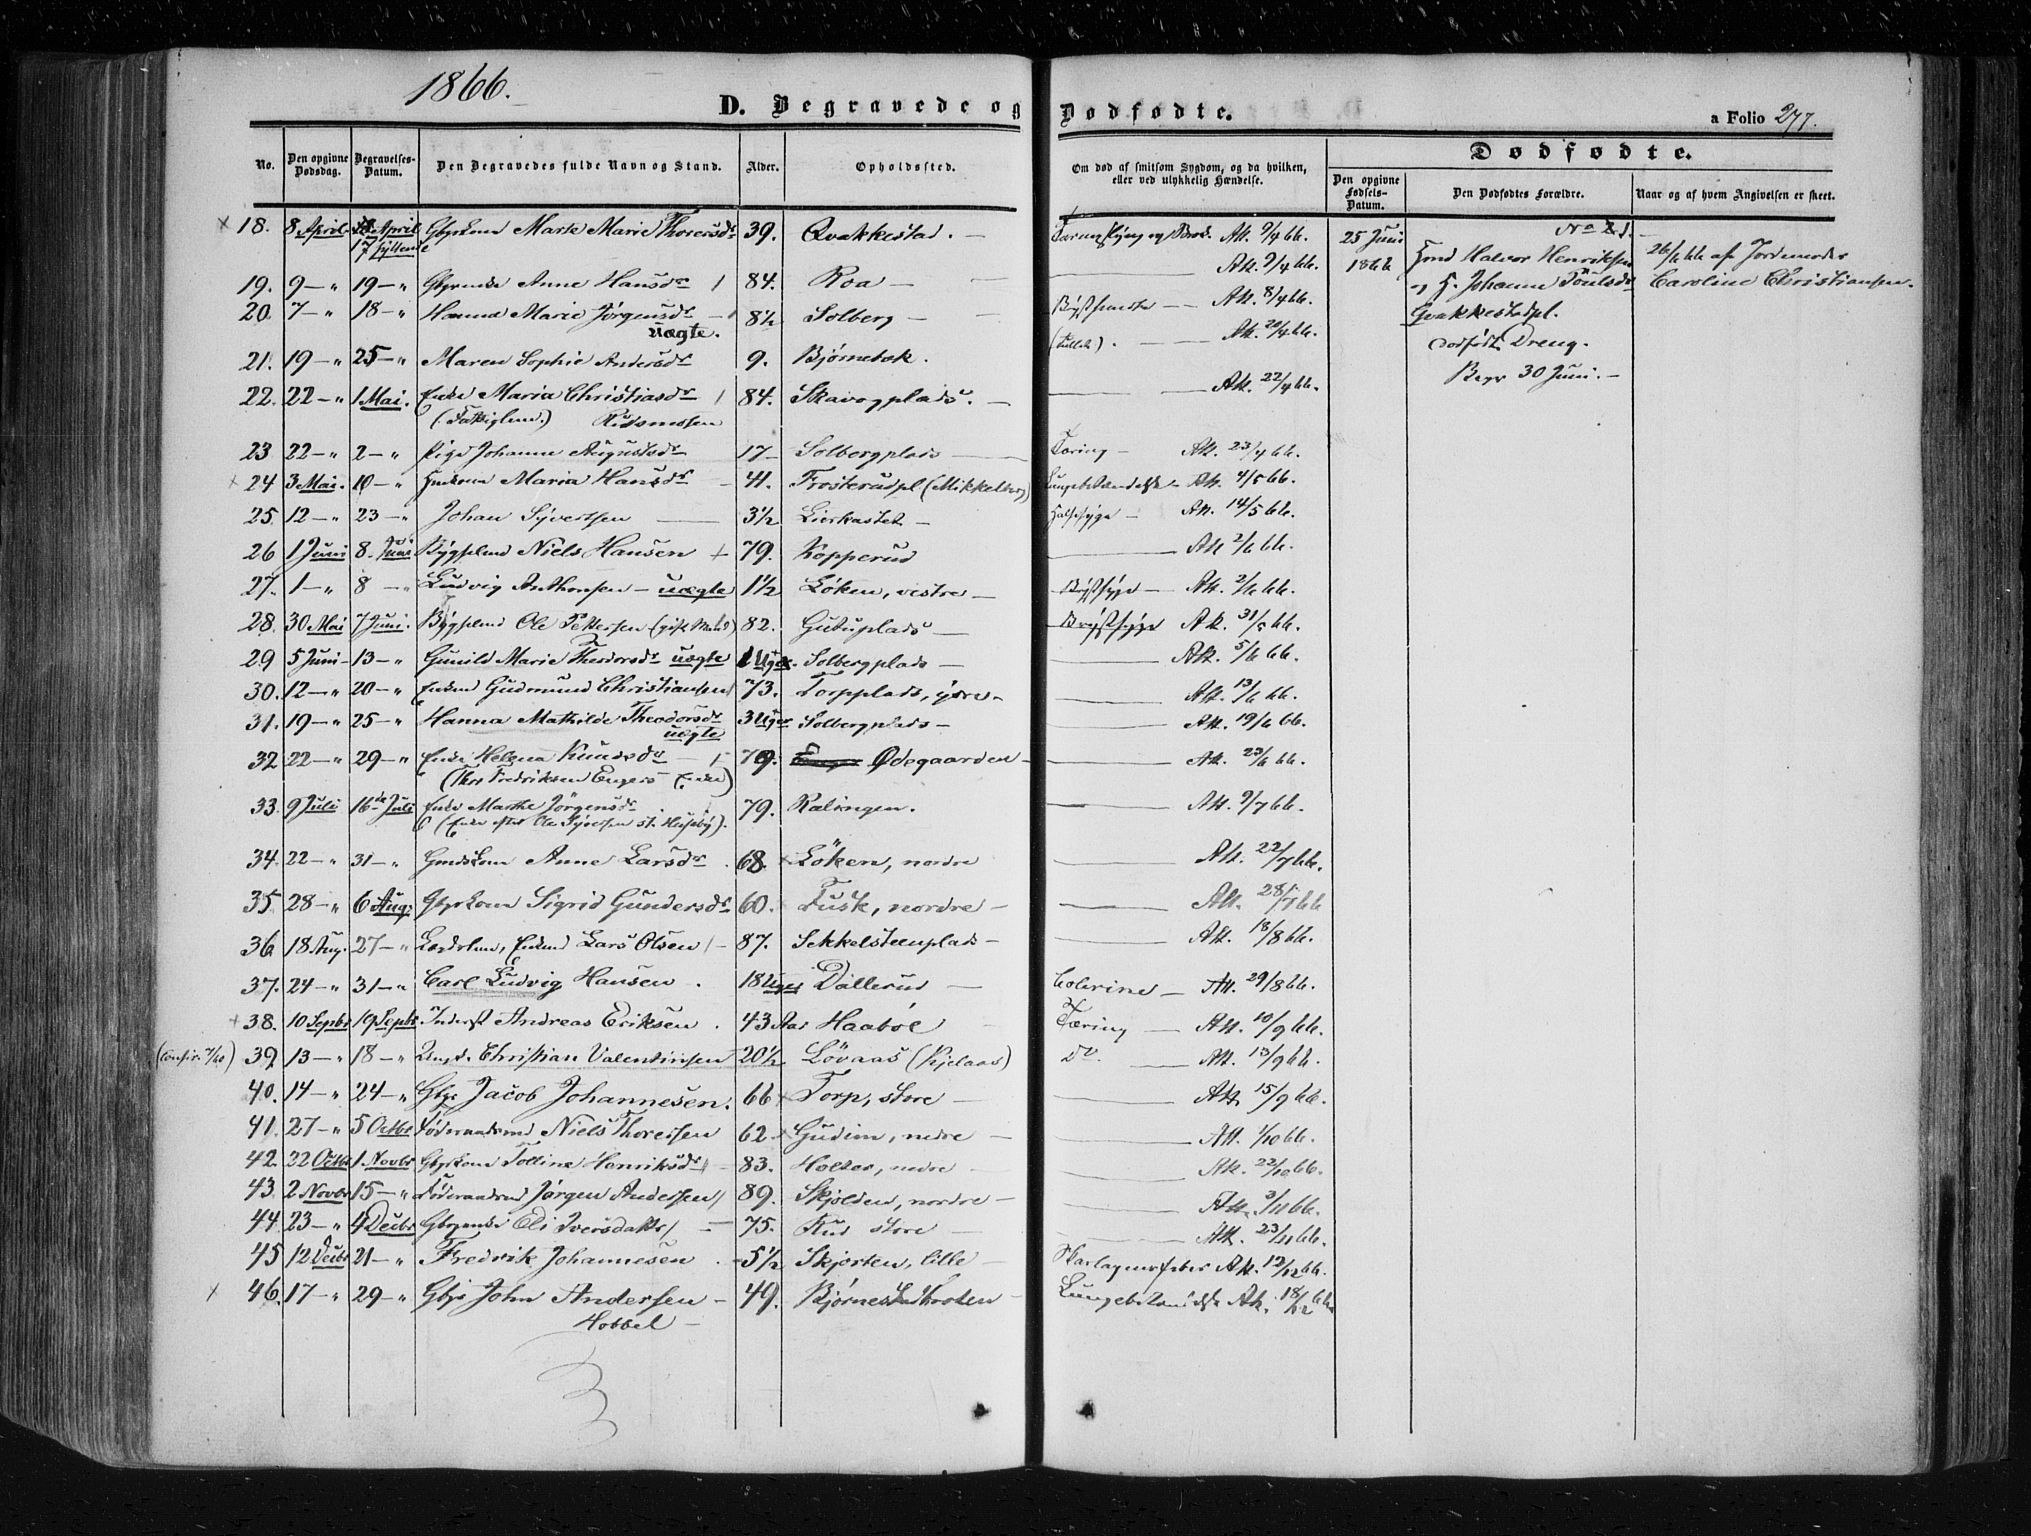 1866.
D. Begravede og Dødfødte.
a Folio 277.
No.
Den opgivne Dødsdag.
Begravelses-Datum.
Den Begravedes fulde Navn og Stand.
Alder.
Opholdssted.
Om død af smitsom Sygdom, og da hvilken, eller ved ulykkelig Hændelse.
Dødfødte.
Den opgivne Fødsels-Datum.
Den Dødfødtes Forældre.
Naar og af hvem Angivelsen er skeet.
18. 8 April April Marte Marie Thoresdr 39. Qvakkestad. Att. 9/4 66.
17 syttende
19. 9 — " 19 — " Anne Hansdr 84. Roa — Att. 9/4 66.
20. 7 — " 18 — " Hanna Marie Jørgensdr 8½ Solberg — Att. 8/4 66.
uægte.
21. 19 — " 25 — " Maren Sophie Andersdr 9. Bjørnebek. Att. 20/4 66.
22. 22 — " 1 Mai. Enke Maria Christiansdr 84. Skavogplads. — Att. 22/4 66.
23 22 — " 2 — " Pige Johanne Augustsdr 17 — Solbergplads — Tæring — Att. 23/4 66.
24 3 Mai. 10 — " Maria Hansdr 41. Frosterudpl (Mikkelborg) Lungebetændelse — Att. 4/5 66.
25. 12 — " 23 — " Johan Syvertsen — 3½ Lierkastet — Halssyge — Att. 14/5 66.
26 1 Juni 8. Juni Bygselmd Niels Hansen 79. Kopperud — Att. 2/6 66.
27. 1 — " 8 — " Ludvig Anthonsen — uægte 1½ Løken, vestre — Brystsyge — Att. 2/6 66.
28. 30 Mai 7 Juni. Bygselmd Ole Pettersen 82. Gutuplads — Brystsyge Att. 31/5 66.
29 5 Juni 13 — " Gunild Marie Theodorsdr uægte Uger. Solbergplads — Att. 5/6 66.
30. 12 — " 20 — " Enkemd Gudmund Christiansen 73. Torpplads, øvre — Att. 13/6 66.
31. 19 — " 25 — " Hanna Mathilde Theodorsdr 3 Uger Solbergplads — Att. 19/6 66.
uægte
32 22 — " 29 — " Enke Helena Knudsdr 79. Ødegaarden — Att. 23/6 66.
(Thos Fredriksen Engers Enke)
33. 9 Juli 16de Juli Enke Marthe Jörgensdr 79. Ralingen. — Att. 9/7 66.
(Enke efter Ole Syversen st. Huseby).
34. 22 — " 31 — " Anne Larsdr 68. Löken, nordre — Att. 22/7 66.
35. 28 — " 6 Aug. Gbrkone Sigrid Gundersdr 60. Fusk, nordre — Att. 28/7 66
36 18 Aug. 27 — " Enkemd Lars Olsen 87. Sekkelsteenplads — Att. 18/8 66.
37. 24 — " 31 — " Carl Ludvig Hansen. 18 Uger Dallerud — Colerine — Att. 29/8 66.
38. 10 Septbr 19 Septbr Inderst Andreas Eriksen. 43 Aar Haaböl Tæring — Att. 10/9 66.
39. 13 — " 18 — " Christian Valentinsen 20½ Lövaas (Kjelaas) Do. — Att. 13/9 66.
40. 14 — " 24 — " Gbr Jacob Johannesen. 66 Torp, store — Att. 15/9 66.
41. 27 — " 5 Octbr Føderaadsmd Niels Thoresen 62. Gudim, nedre — Att. 1/10 66.
42. 22 Octbr 1 Novbr Gbrkone Tolline Henriksdr 83. Holter, nedre — Att. 22/10 66.
43. 2 Novbr 15 — " Føderaadsmd Jørgen Andersen 89. Skjolden, nordre — Att. 3/11 66.
44. 23 — " 4 Decbr Gbrenke Eli Iversdatter — 75. Rud store — Att. 23/11 66.
45 12 Decbr 21 — " Fredrik Johannesen. 5½ Skjorten, lille — Skarlagensfeber Att. 12/12 66.
46. 17 — " 29 — " Gbr John Andersen — 49. Lungebetændelse Att. 18/12 66.
Hobbel —
25 Juni 1866
No 1.
Halvor Henriksen
og H. Johanne Poulsdr
Qvakkestadpl.
dødfødt Dreng.
Begr 30 Juni. —
26/6 66 af Jordemoder
Caroline Christiansen.